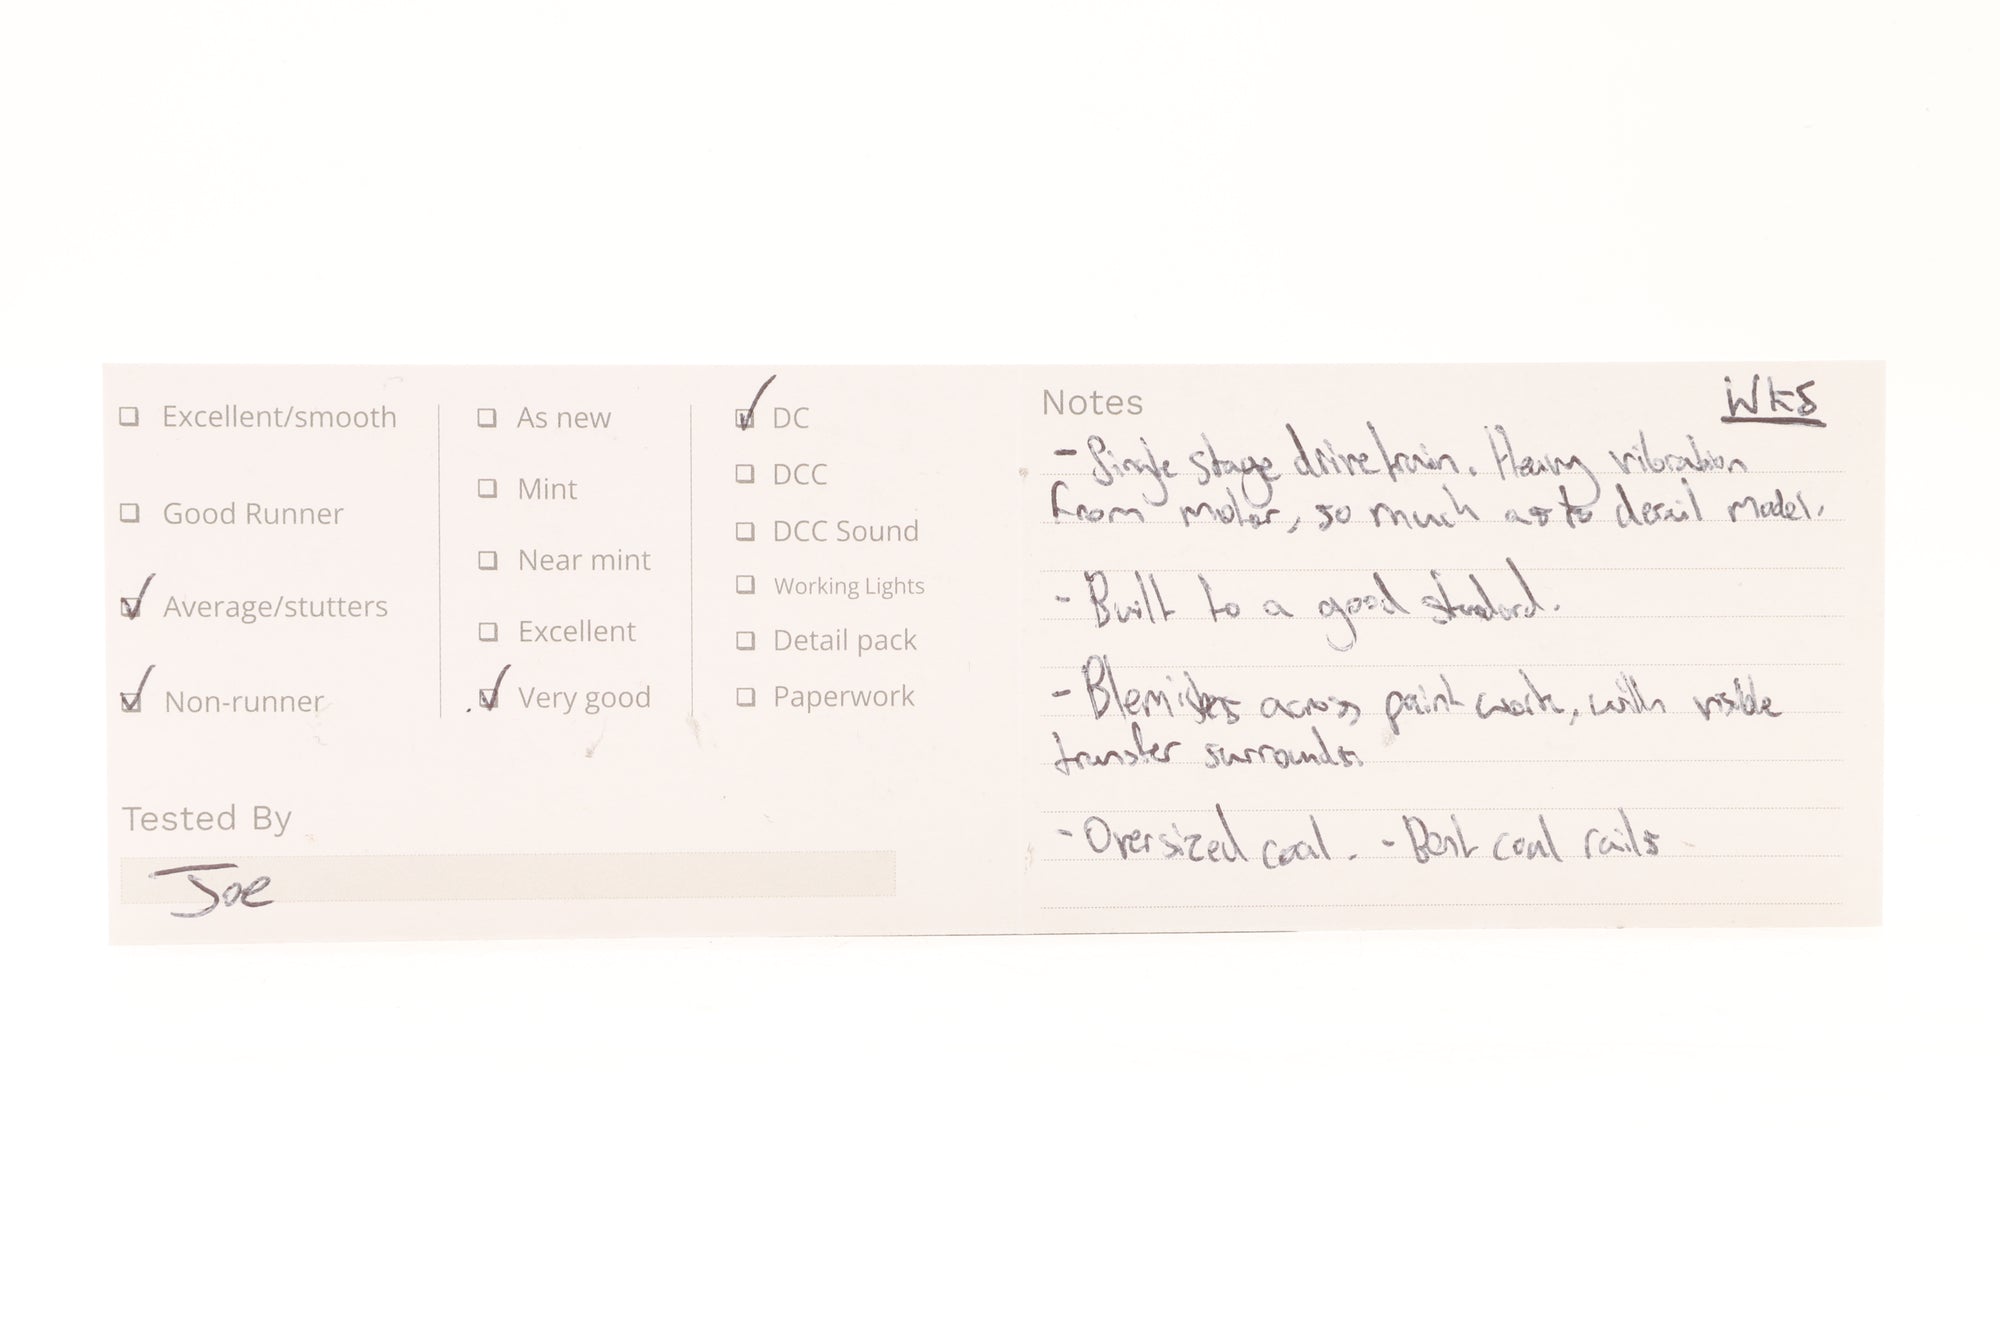 Excellent/smooth
Good Runner
Average/stutters
Non-runner
As new
Mint
Near mint
Excellent
Very good
DC
DCC
DCC Sound
Working Lights
Detail pack
Paperwork
Tested By
Joe
Notes
WKS
- Single stage drivetrain. Heavy vibration
from motor, so much as to derail model.
- Built to a good standard.
- Blemishes across paint work, with visible
transfer surrounds
- Oversized coal. - Bent coal rails